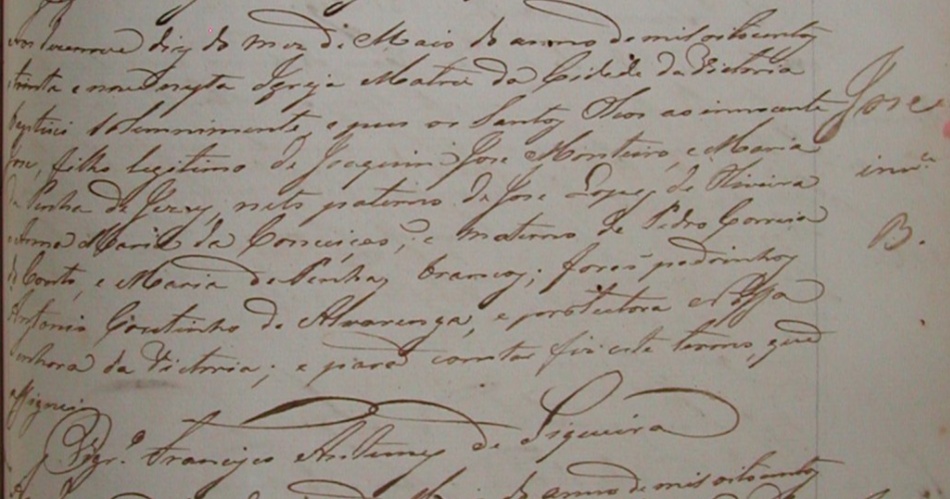 Aos dezenove dias do mez de Maio do anno de mil oitocentos
trinta e nove nesta Igreja Matriz da Cidade da Victoria
baptisei solemnimente, e puz os Santos Oleos ao innocente
Jose, filho legitimo de Joaquim Jose Monteiro, e Maria
da Penha de Jezus, neto paterno de Jose Lopes de Oliveira
e Anna Maria da Conceiçaõ, e materno de Pedro Correia
do Couto, e Maria da Penha, brancos; foraõ padrinhos
Antonio Coutinho de Alvarenga, e protectora N. Sra
Senhora da Victoria; e para constar fiz este termo, que
assignei.
Vigr.º Francisco Antunes de Siqueira
Jose
inn.te
B.
do anno de mil oitocentos